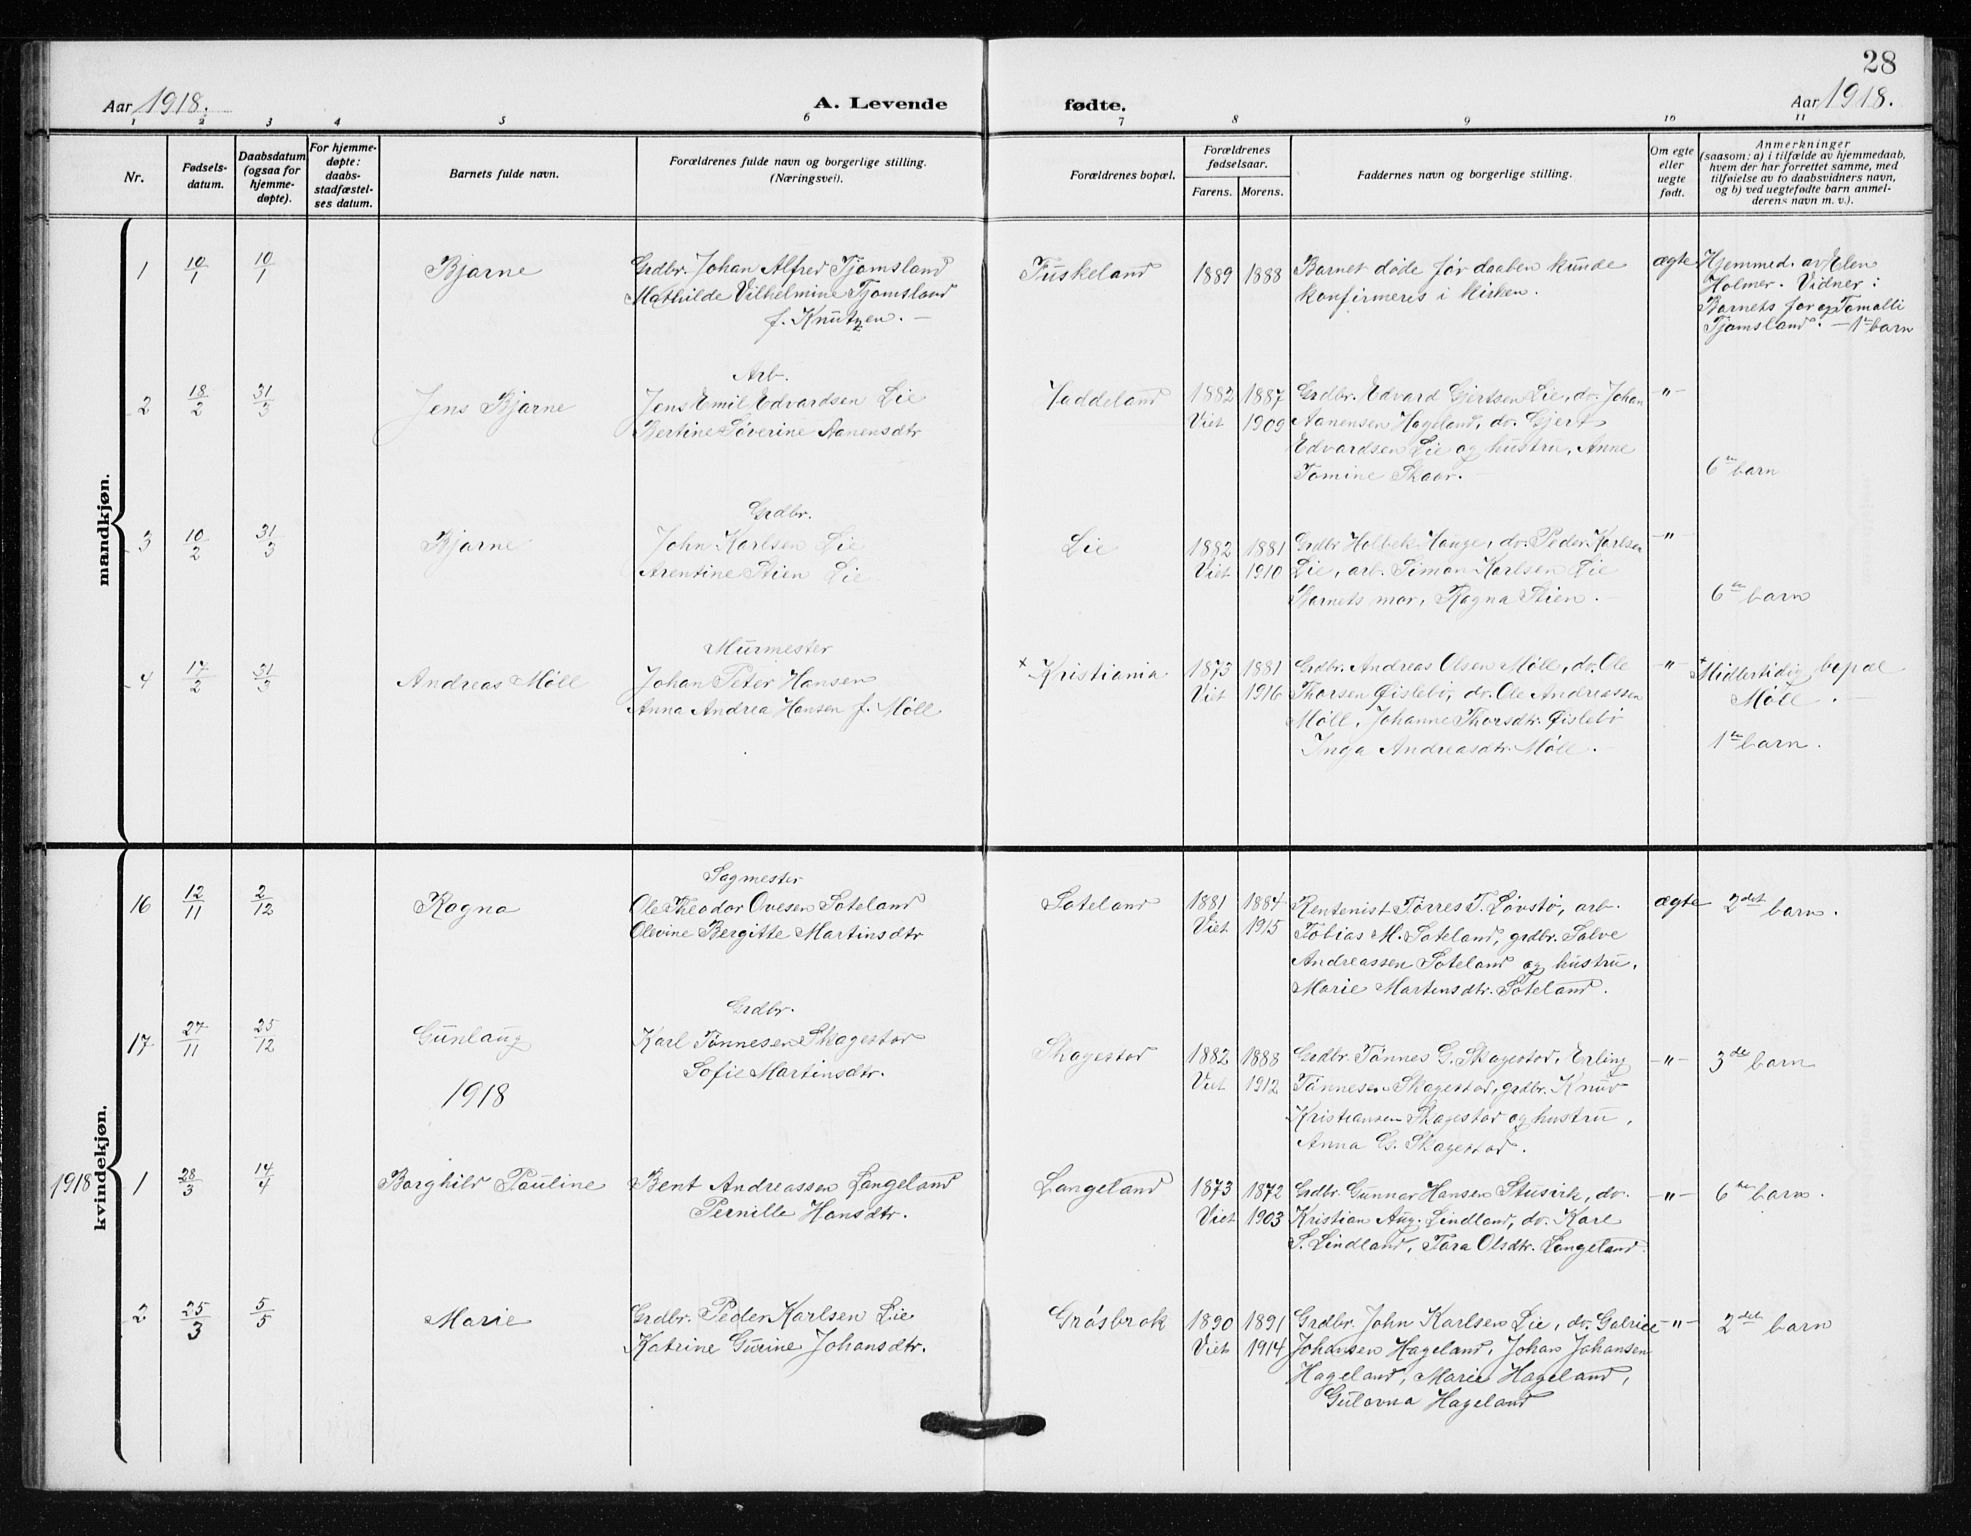 28
Aar 1918.
A. Levende
fødte.
Aar 1918.
1 2 3 4 5 6 7 8 9 10 11
Nr.
Fødsels-
datum.
Daabsdatum
(ogsaa for
hjemme-
døpte).
For hjemme-
døpte:
daabs-
stadfæstel-
ses datum.
Barnets fulde navn.
Forældrenes fulde navn og borgerlige stilling.
(Næringsvei).
Forældrenes bopæl.
Forældrenes
fødselsaar.
Farens. Morens.
Faddernes navn og borgerlige stilling.
Om egte
eller
uegte
født.
Anmerkninger
(saasom: a) i tilfælde av hjemmedaab,
hvem der har forrettet samme, med
tilføielse av to daabsvidners navn,
og b) ved uegtefødte barn anmel-
derens navn m. v.).
mandkjøn.
1 10/1 10/1 Bjarne
Grdbr. Johan Alfred Tjomsland
Mathilde Vilhelmine Tjomsland
f. Knutzen. —
Fuskeland
1889 1888
Barnet døde før daaben kunde
konfirmeres i kirken.
ægte
Hjemmed. av Elen
Holmer. Vidner:
Barnets far og Tomalli
Tjomsland. — 1ste barn
2 18/2 31/3 Jens Bjarne
Arb.
Jens Emil Edvardsen Lie
Bertine Søverine Aanensdtr
Faddeland
1882 1887
Viet 1909
Grdbr. Edvard Gjertsen Lie, do. Johan
Aanensen Hageland, do. Gjert
Edvardsen Lie og hustru, Anne
Tomine Skaar. —
—"—
6te barn
3 10/2 31/3 Bjarne
Grdbr.
John Karlsen Lie
Arentine Stien Lie
Lie
1882 1881
Viet 1910
Grdbr. Holbek Hauge, do. Peder Karlsen
Lie, arb. Simon Karlsen Lie
Barnets mor, Ragna Stien. —
—"—
6te barn
4 17/2 31/3 Andreas Møll
Murmester
Johan Peter Hansen
Anna Andrea Hansen f. Møll
× Kristiania
1873 1881
Viet 1916
Grdbr. Andreas Olsen Møll, do. Ole
Thorsen Øislebø, do. Ole Andreassen
Møll, Johanne Thorsdtr. Øislebø
Inga Andreasdtr. Møll. —
—"—
× Midlertidig bopæl
Møll. —
1ste barn.
kvindekjøn.
16 12/11 2/12 Ragna
Sagmester
Ole Theodor Ovesen Sateland
Olevine Bergitte Martinsdtr
Sateland
1881 1884
Viet 1915
Rentenist Tørres T. Løvstø, arb.
Tobias M. Sateland, grdbr. Salve
Andreassen Sateland og hustru,
Marie Martinsdtr. Sateland.
ægte
2det barn.
17 27/11 25/12 Gunlaug
Grdbr.
Karl Tønnesen Skagestad
Sofie Martinsdtr.
Skagestad
1882 1888
Viet 1912
Grdbr. Tønnes G. Skagestad, Erling
Tønnesen Skagestad, grdbr. Knud
Kristiansen Skagestad og hustru,
Anna G. Skagestad.
—"—
3die barn
1918
1918 1 28/3 14/4 Borghild Pauline
Bent Andreassen Langeland
Pernille Hansdtr.
Langeland
1873 1872
Viet 1903
Grdbr. Gunnar Hansen Stusvik, do.
Kristian Aug. Lindland, do. Karl
S. Lindland, Tara Olsdtr. Langeland.
—"—
6te barn.
2 25/3 5/5 Marie
Grdbr. Peder Karlsen Lie
Katrine Gurine Johansdtr.
Grøsbrok
1890 1891
Viet 1914
Grdbr. John Karlsen Lie, do. Gabriel
Johansen Hageland, Johan Johansen
Hageland, Marie Hageland,
Gulovna Hageland
—"—
2det barn